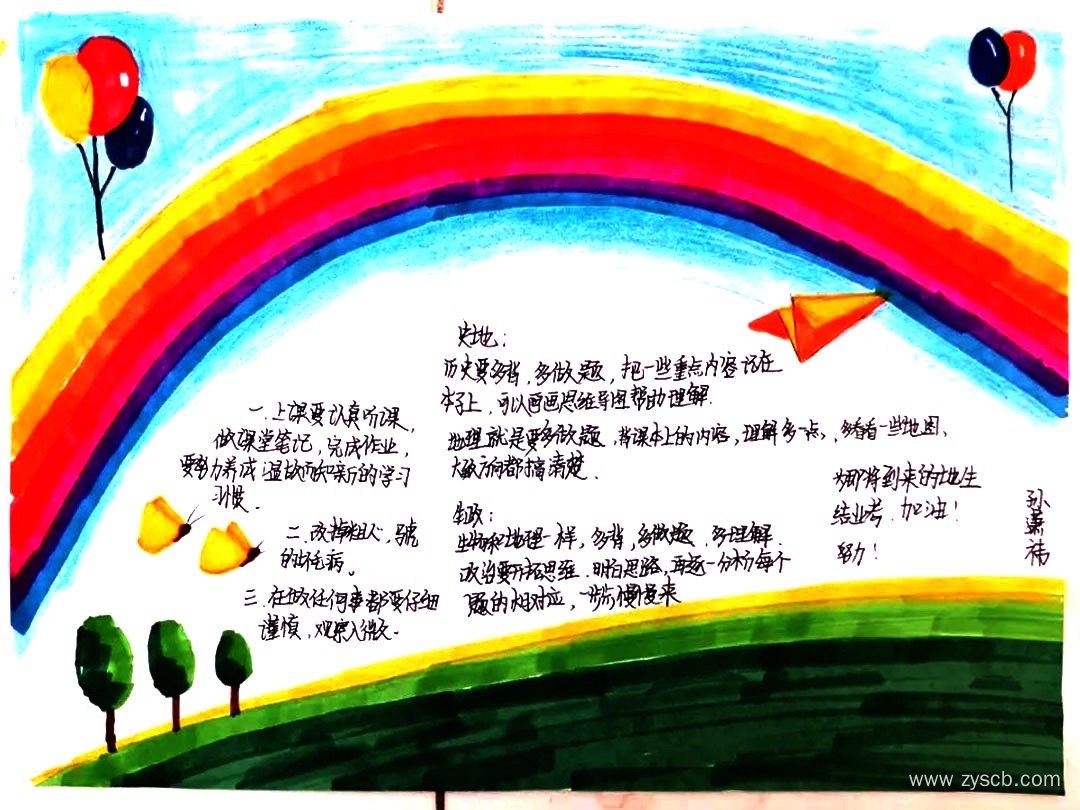 一.上课要认真听课，
做课堂笔记，完成作业，
要努力养成温故而知新的学习
习惯。
二.改掉粗心，
的坏毛病。
三.在做任何事都要仔细
谨慎，观察入微。
史地：
历史要多背，多做题，把一些重点内容记在
本子上，可以画画思维导图帮助理解.
地理就是要多做题，背课本上的内容，理解多一点，多看看一些地图、
大致方向都搞清楚.
生政：
生物和地理一样，多背，多做题，多理解.
政治要开拓思维.明白思路，再逐一分析每个
题的相对应，一步步慢慢来
为即将到来的地生
结业考.加油！
努力！
孙
www.zyscb.com